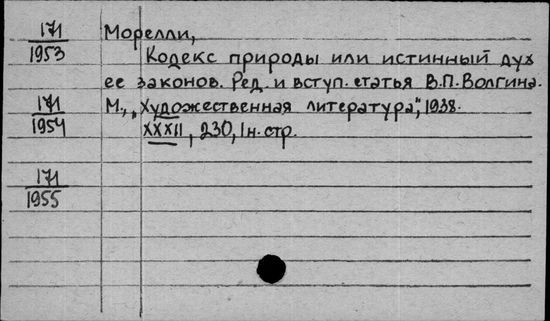 171
1953
Морелли,
Кодекс природы или истинный дух
ее законов. Ред. и вступ. статья В.П. Волгина.
171
1954
М., „Художественная литература”, 1938.
XXXII, 230, 1 н. стр.
171
1955